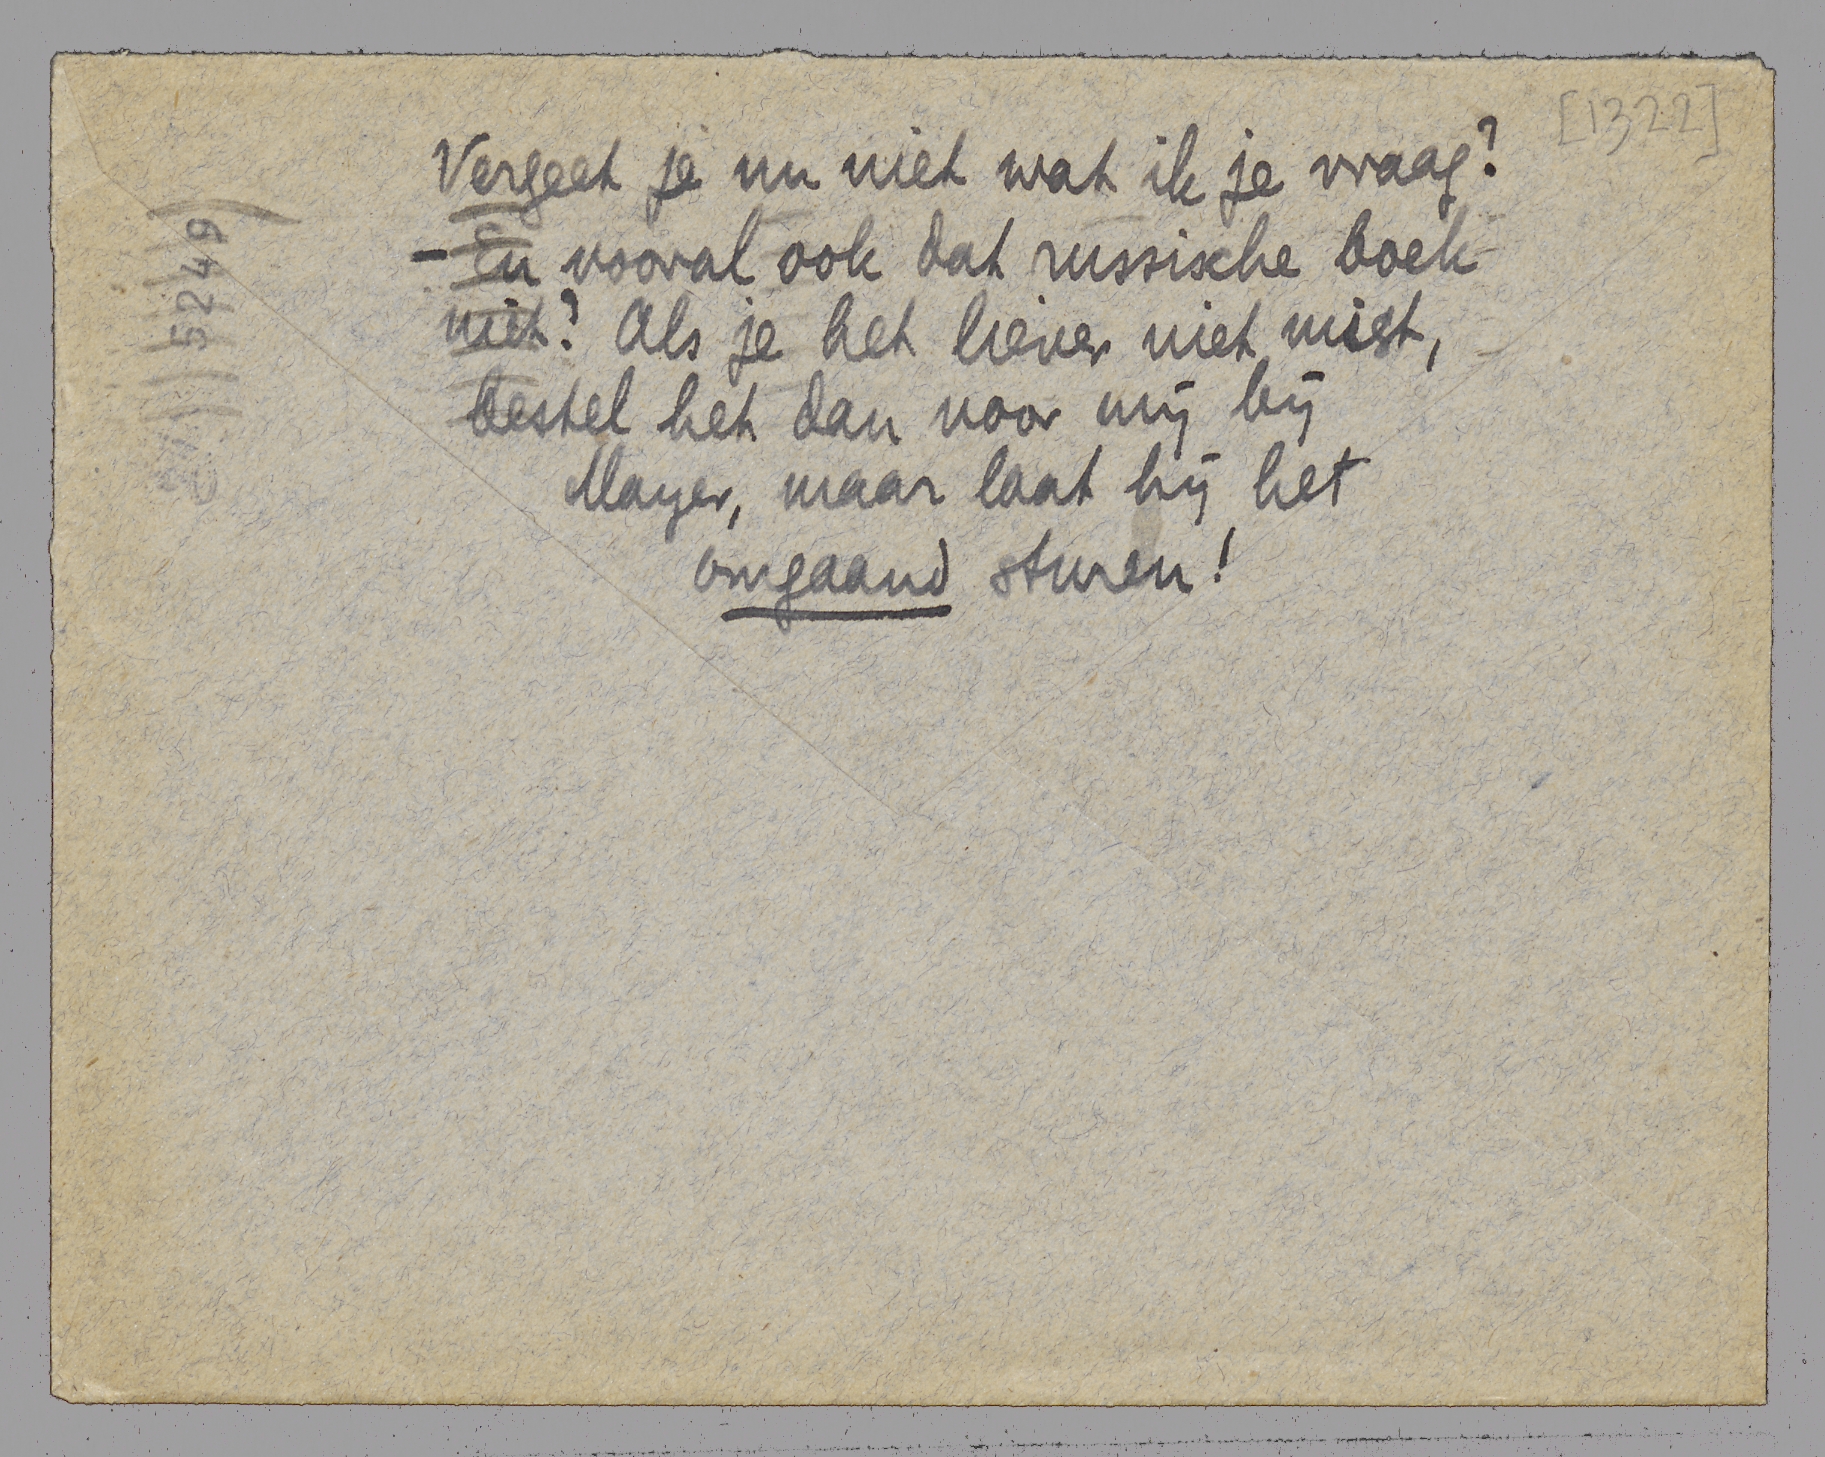 [1322]
Vergeet je nu niet wat ik je vraag?
- En vooral ook dat russische boek
niet? Als je het liever niet mist,
bestel het dan voor mij bij
Mayer, maar laat hij het
omgaand sturen!
5249